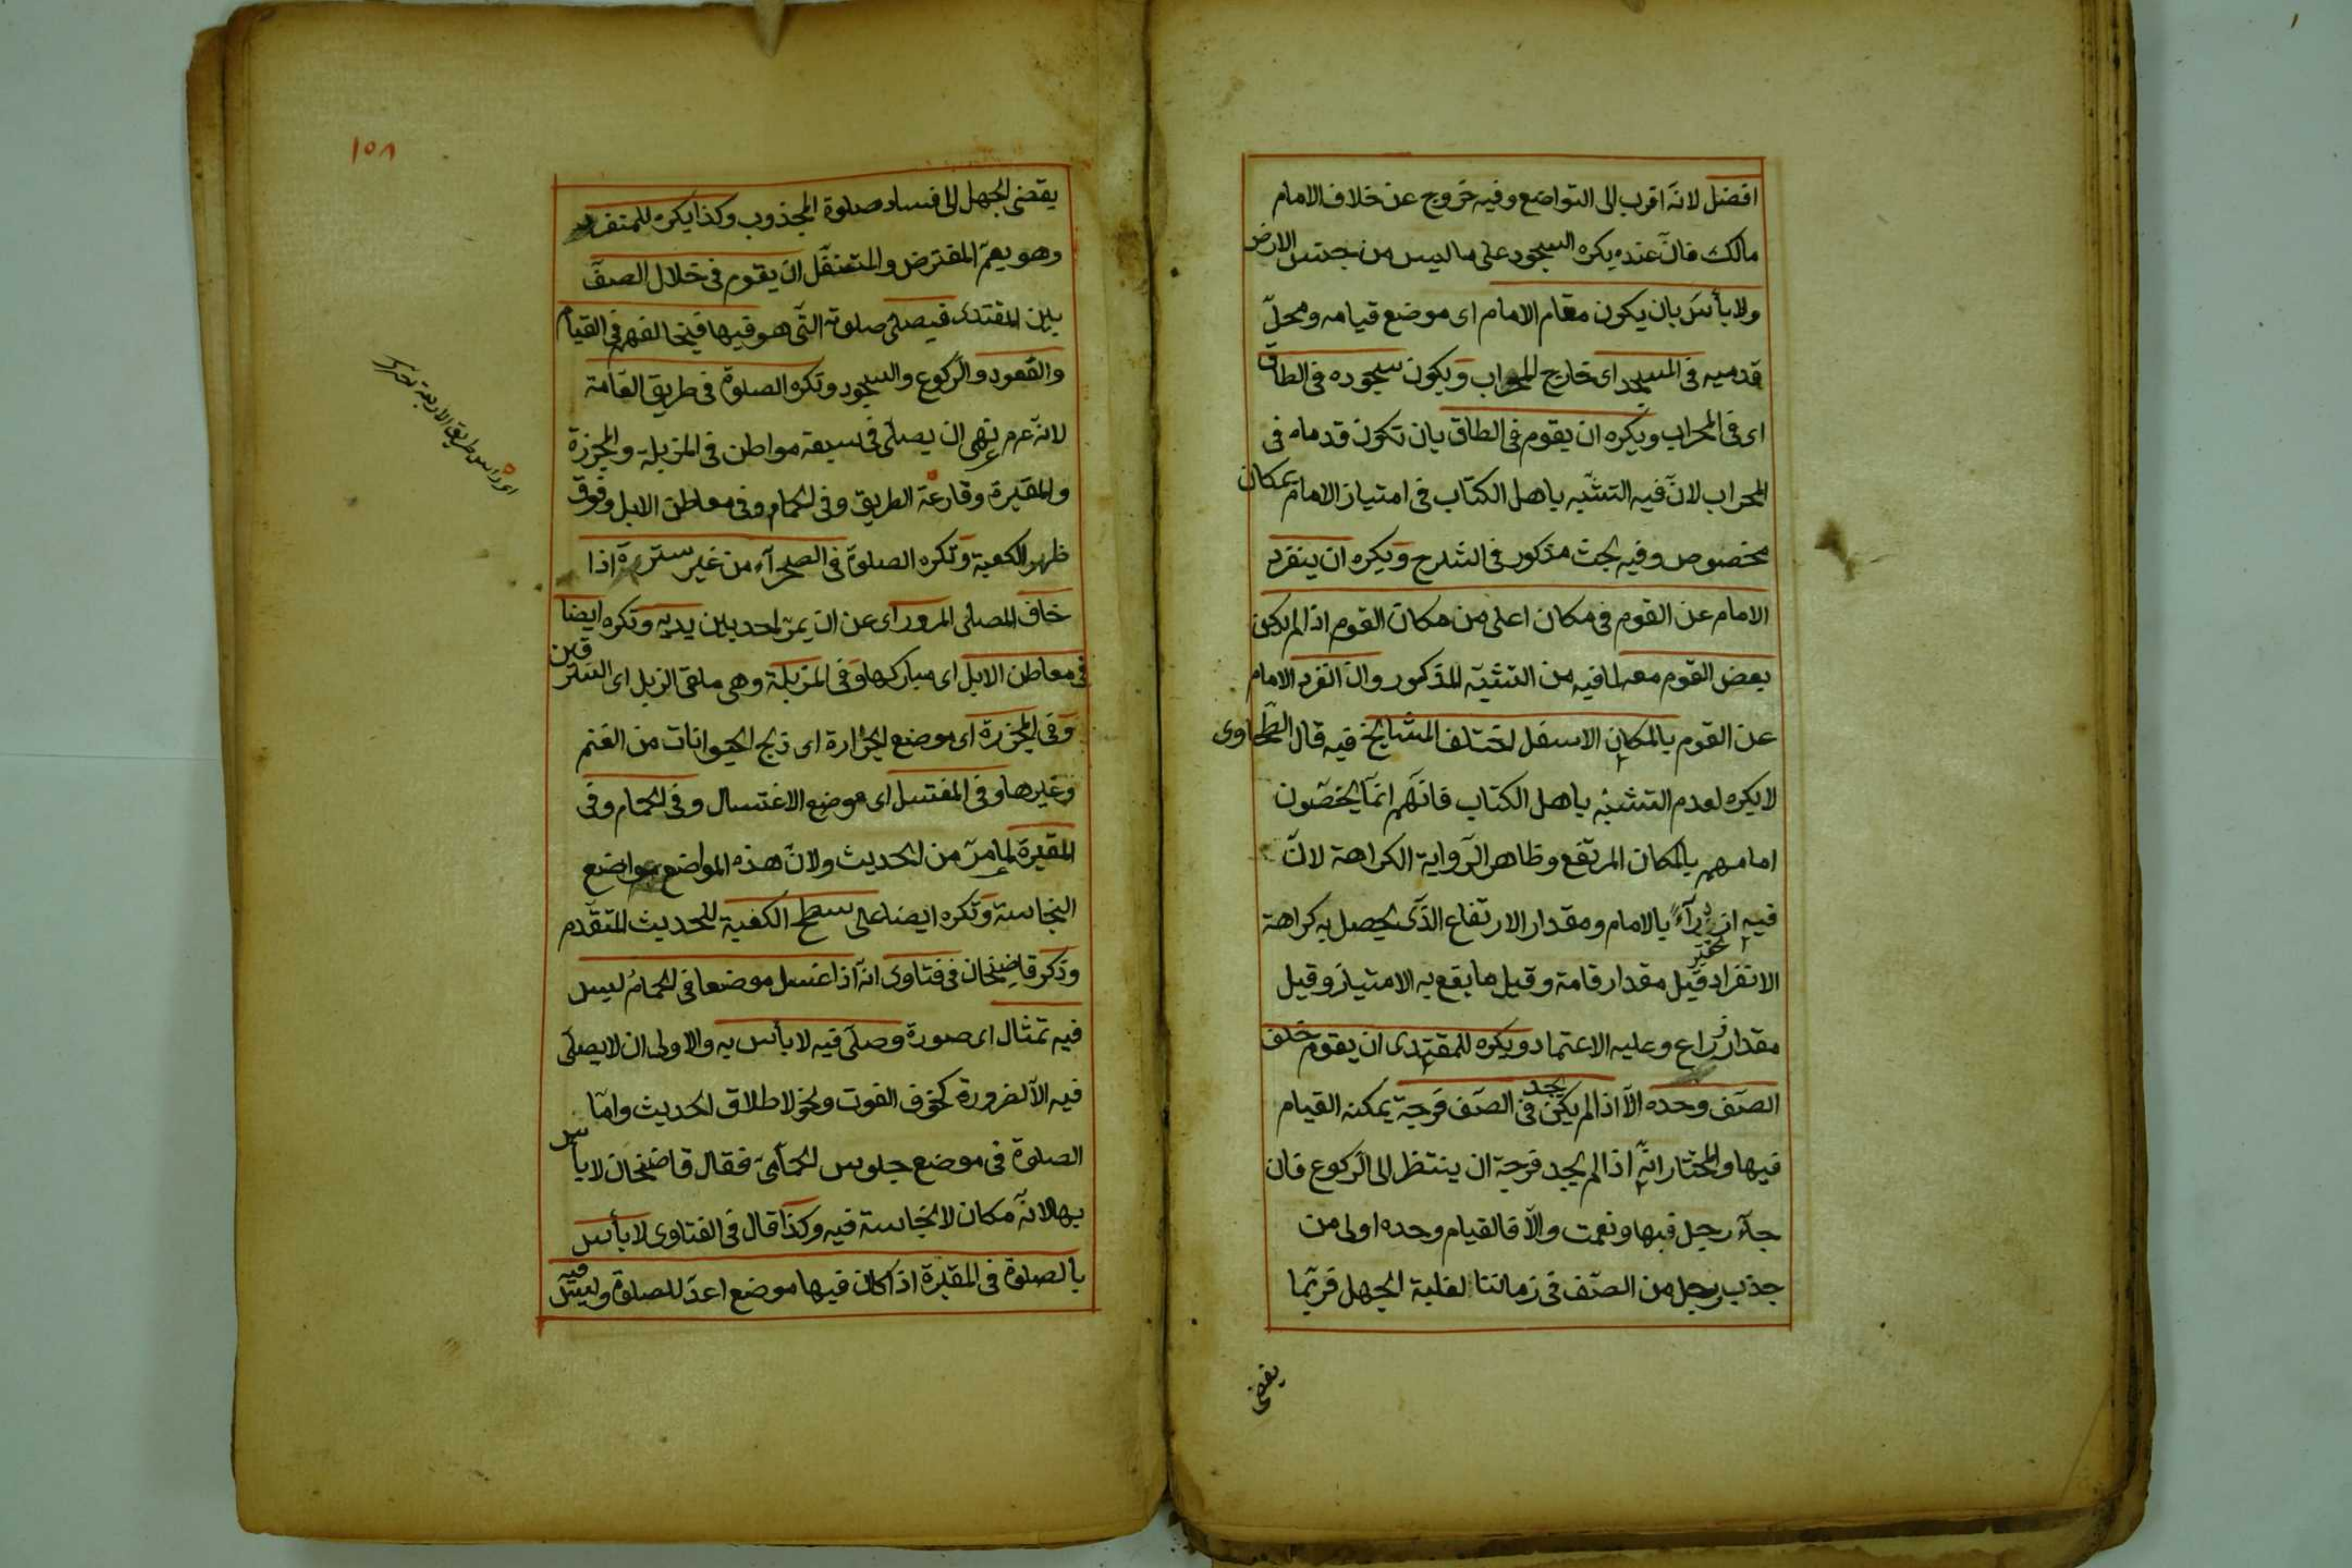 افضل لانه اقرب الى التواضع وفيه خروج عن خلاف الامام
مالك فان عنده يكره السجود على ما ليس من جنس الارض
ولا بأس بان يكون مقام الامام اى موضع قيامه ومحلّ
قدميه فى المسجد اى خارج المحراب ويكون سجوده فى الطاق
اى فى المحراب ويكره ان يقوم فى الطاق بان تكون قدماه فى
المحراب لانّ فيه التشبّه باهل الكتاب فى امتياز الامام بمكان
مخصوص وفيه بحث مذكور فى الشرح ويكره ان ينفرد
الامام عن القوم فى مكان اعلى من مكان القوم اذا لم يكن
بعض القوم معه لما فيه من التشبّه المذكور وان انفرد الامام
عن القوم بالمكان الاسفل اختلف المشايخ فيه قال الطحاوى
لا يكره لعدم التشبّه باهل الكتاب فانّهم انّما يخصّون
امامهم بالمكان المرتفع وظاهر الرّواية الكراهة لانّ
فيه ازدراءً بالامام ومقدار الارتفاع الذّى يحصل به كراهة
تحقير
الانفراد قيل مقدار قامة وقيل ما يقع به الامتياز وقيل
مقدار ذراع وعليه الاعتماد ويكره للمقتدى ان يقوم خلف
الصّف وحده الّا اذا لم يكن يجد فى الصّف فرجة يمكنه القيام
فيها والمختار انّه اذا لم يجد فرجة ان ينتظر الى الركوع فان
جآء رجل فبها ونعمت والّا فالقيام وحده اولى من
جذب رجل من الصّف فى زماننا لغلبة الجهل فربّما
يفضى
١٥٨
يفضى الجهل الى فساد صلوة المجذوب وكذا يكره للمنفرد
وهو يعمّ المفترض والمتنفّل ان يقوم فى خلال الصفّ
بين المقتدى فيصلّى صلوته التّى هو فيها فيخالفهم فى القيام
والقعود والركوع والسجود وتكره الصلوة فى طريق العامّة
لانه عم نهى ان يصلّى فى سبعة مواطن فى المزبلة والمجزرة
والمقبرة وقارعة الطريق وفى الحمام وفى معاطن الابل وفوق
ظهر الكعبة وتكره الصلوة فى الصحرآء من غير سترة اذا
خاف المصلى المرور اى عن ان يمرّ احد بين يديه وتكره ايضا
فى معاطن الابل اى مباركها وفى المزبلة وهى ملقى الزبل اى السرقين
وفى المجزرة اى موضع الجزّارة اى ذبح الحيوانات من الغنم
وغيرها وفى المغتسل اى موضع الاغتسال وفى الحمام وفى
المقبرة لما مرّ من الحديث ولانّ هذه المواضع مواضع
النجاسة وتكره ايضا على سطح الكعبة للحديث المتقدّم
وذكر قاضيخان فى فتاوى انّه اذا غسل موضعا فى الحمام ليس
فيه تمثال اى صورة وصلّى فيه لا بأس به والاولى ان لا يصلّى
فيه الّا لضرورة كخوف الفوت ونحو لاطلاق الحديث وامّا
الصلوة فى موضع جلوس الحمّامى فقال قاضيخان لا بأس
بها لانّه مكان لا نجاسة فيه وكذا قال فى الفتاوى لا بأس
بالصلوة فى المقبرة اذا كان فيها موضع اعدّ للصلوة وليس فيه